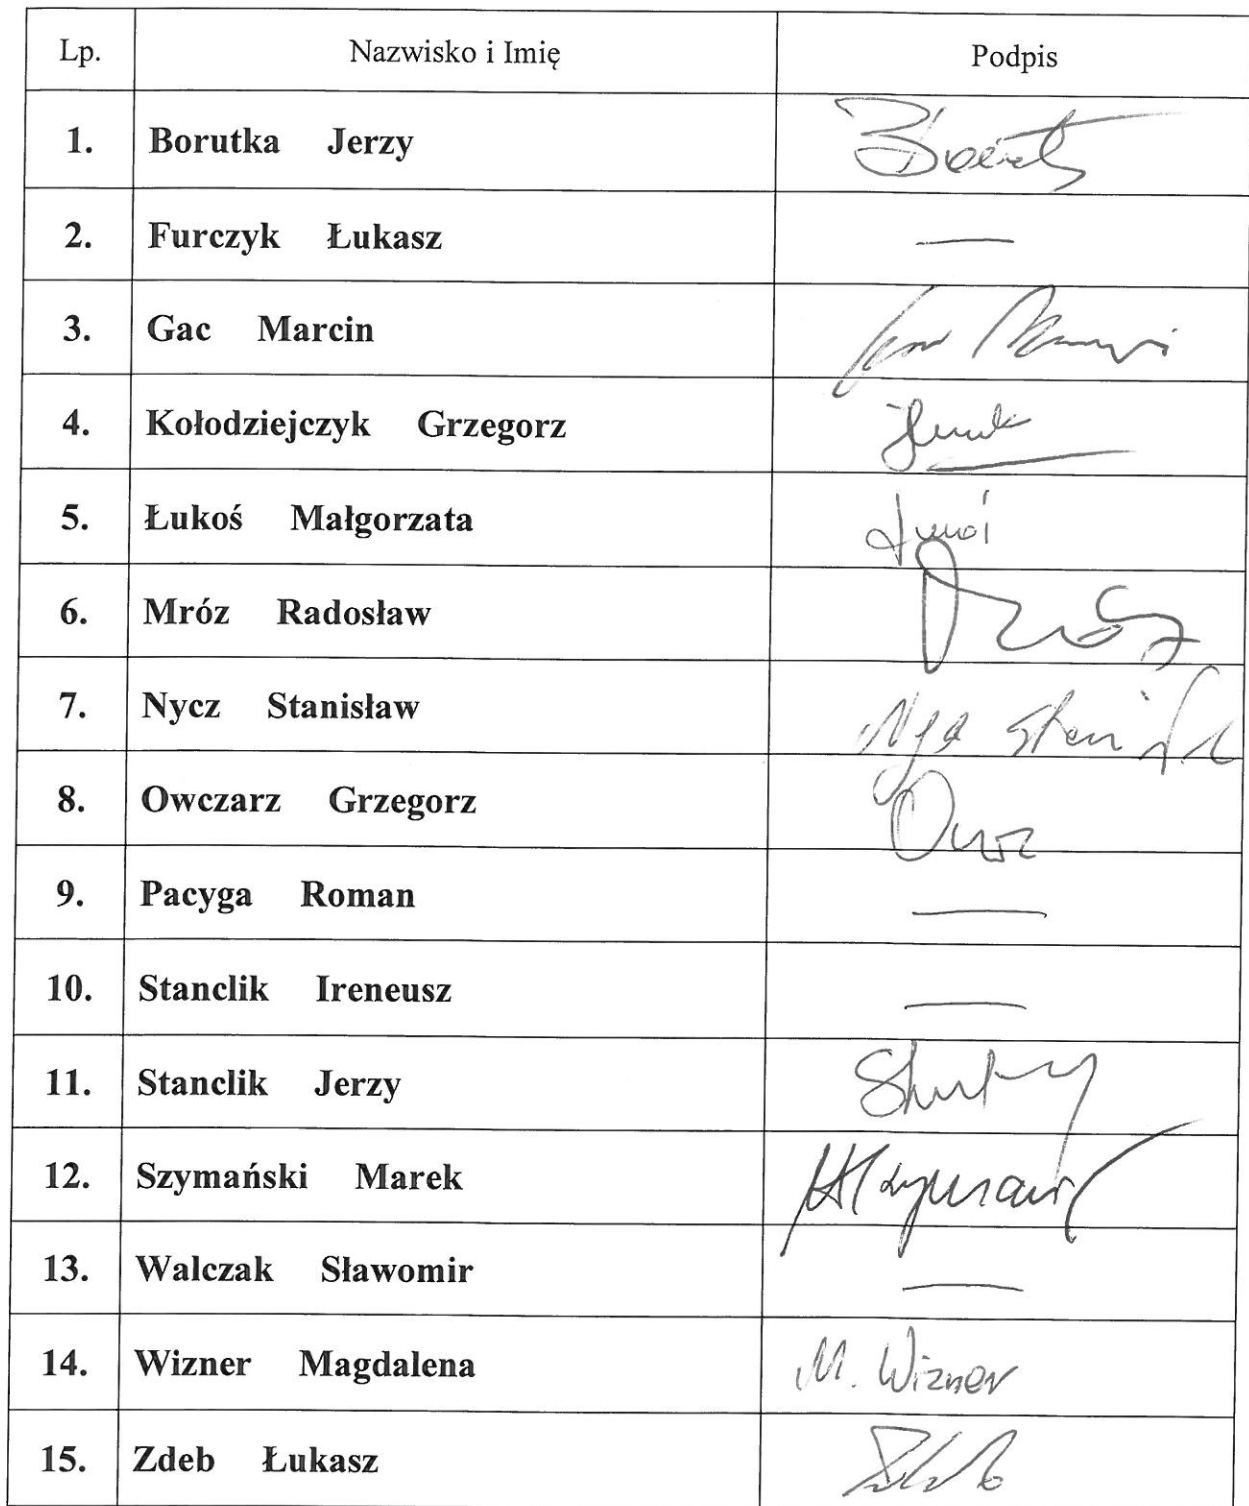 Lp. Nazwisko i Imię Podpis
1. Borutka Jerzy
2. Furczyk Łukasz —
3. Gac Marcin
4. Kołodziejczyk Grzegorz
5. Łukoś Małgorzata
6. Mróz Radosław
7. Nycz Stanisław
8. Owczarz Grzegorz
9. Pacyga Roman —
10. Stanclik Ireneusz —
11. Stanclik Jerzy
12. Szymański Marek
13. Walczak Sławomir —
14. Wizner Magdalena M. Wizner
15. Zdeb Łukasz